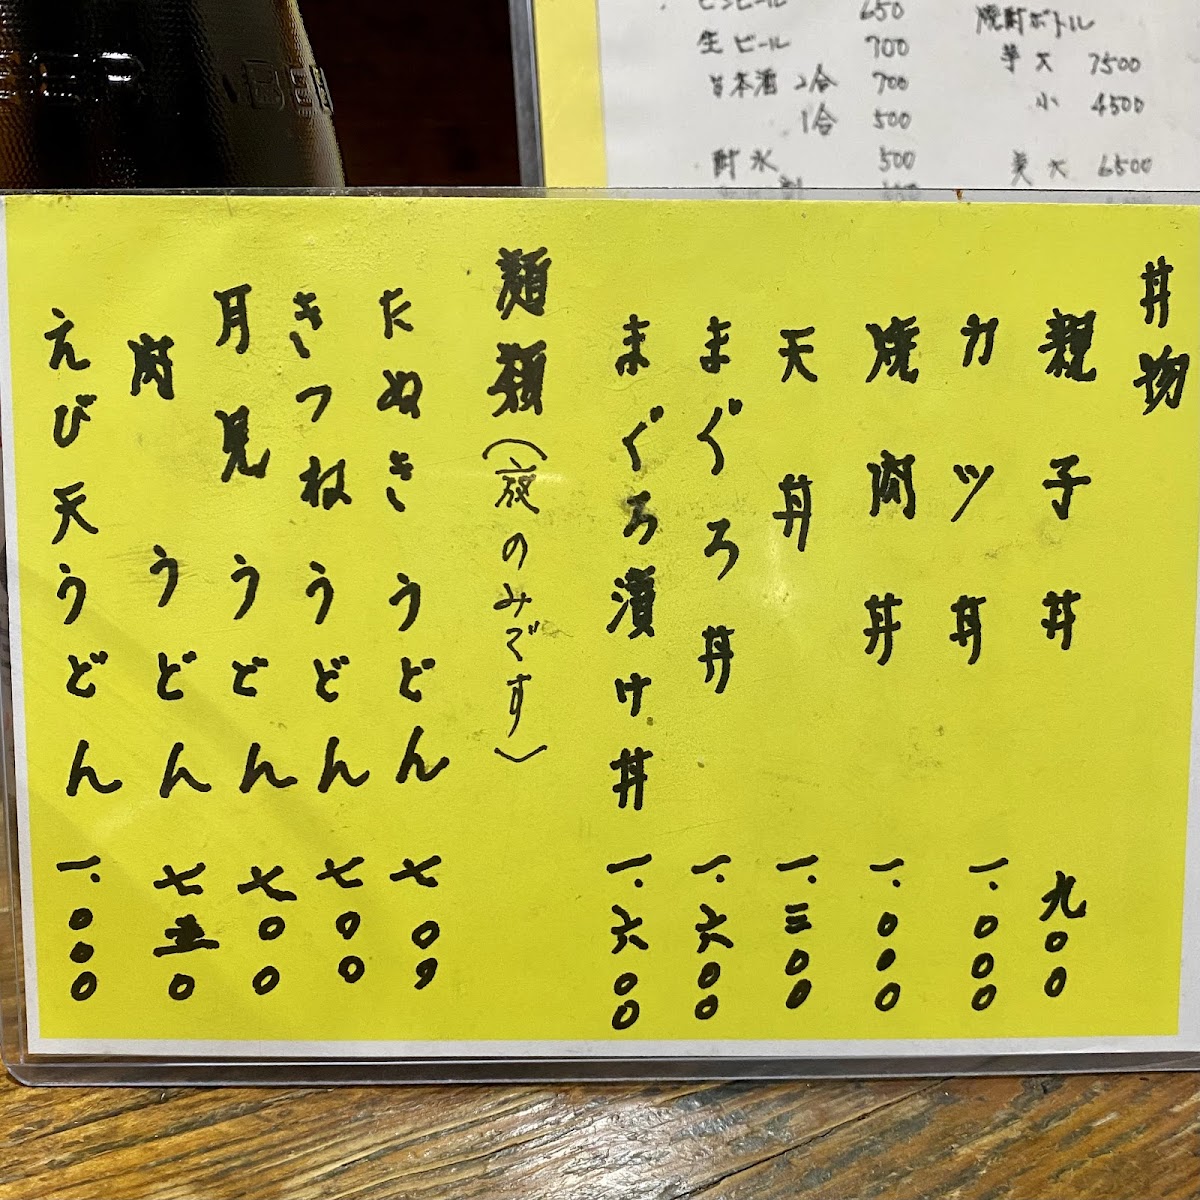 ビンビール 650
生ビール 700
日本酒 2合 700
1合 500
酎氷 500
焼酎ボトル
芋 大 7500
小 4500
麦 大 6500
丼物
親子丼 九〇〇
カツ丼 一.〇〇〇
焼肉丼 一.〇〇〇
天丼 一.三〇〇
まぐろ丼 一.六〇〇
まぐろ漬け丼 一.六〇〇
麺類(夜のみです)
たぬきうどん 七〇〇
きつねうどん 七〇〇
月見うどん 七〇〇
肉うどん 七五〇
えび天うどん 一.〇〇〇